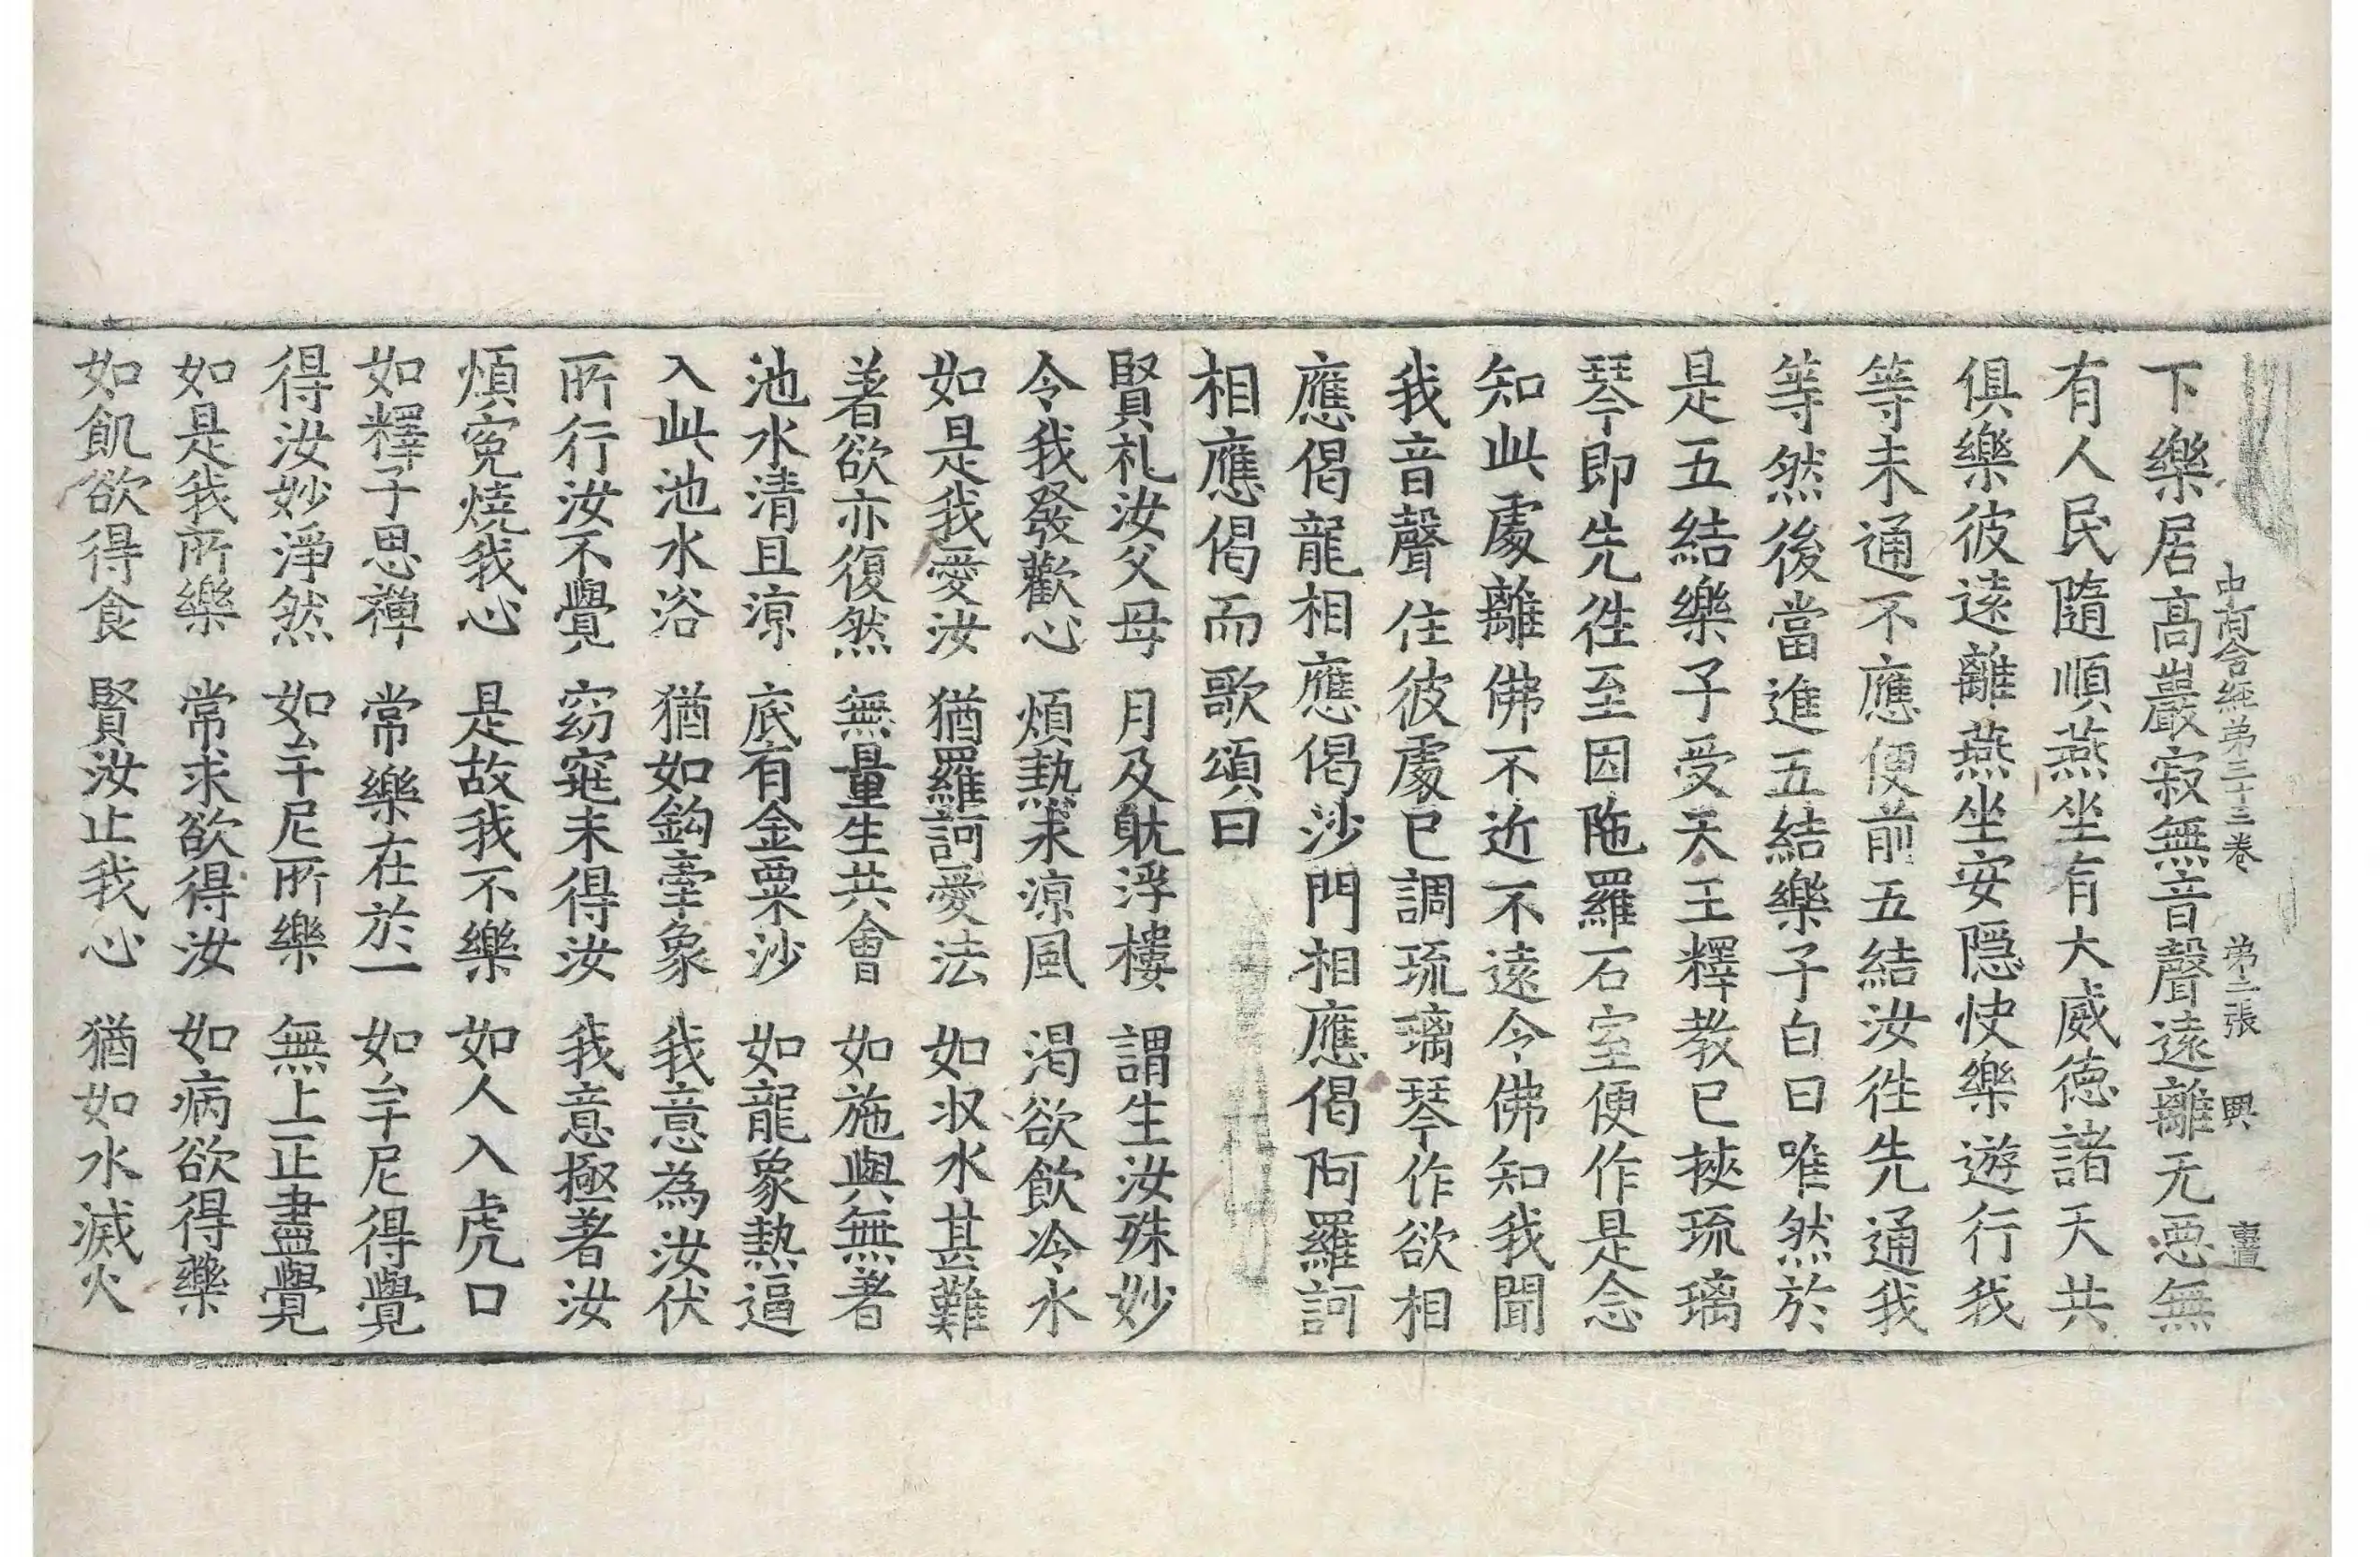 中阿含經第三十三卷　第二張　興　㐭
下樂居高巖寂無音聲遠離无惡無
有人民隨順燕坐有大威德諸天共
俱樂彼遠離燕坐安隱快樂遊行我
等未通不應便前五結汝徃先通我
等然後當進五結樂子白曰唯然於
是五結樂子受天王釋教已挾琉璃
琴即先徃至因陁羅石室便作是念
知此處離佛不近不遠令佛知我聞
我音聲住彼處已調琉璃琴作欲相
應偈龍相應偈沙門相應偈阿羅訶
相應偈而歌頌曰
賢礼汝父母　月及躭浮樓　謂生汝殊妙
令我發歡心　煩熱求凉風　渴欲飲冷水
如是我愛汝　猶羅訶愛法　如収水甚難
著欲亦復然　無量生共會　如施與無著
池水清且凉　底有金粟沙　如龍象熱逼
入此池水浴　猶如鈎牽象　我意為汝伏
所行汝不覺　窈窕未得汝　我意極著汝
煩寃燒我心　是故我不樂　如人入虎口
如釋子思禪　常樂在於一　如牟尼得覺
得汝妙淨然　如牟尼所樂　無上正盡覺
如是我所樂　常求欲得汝　如病欲得藥
如飢欲得食　賢汝止我心　猶如水滅火